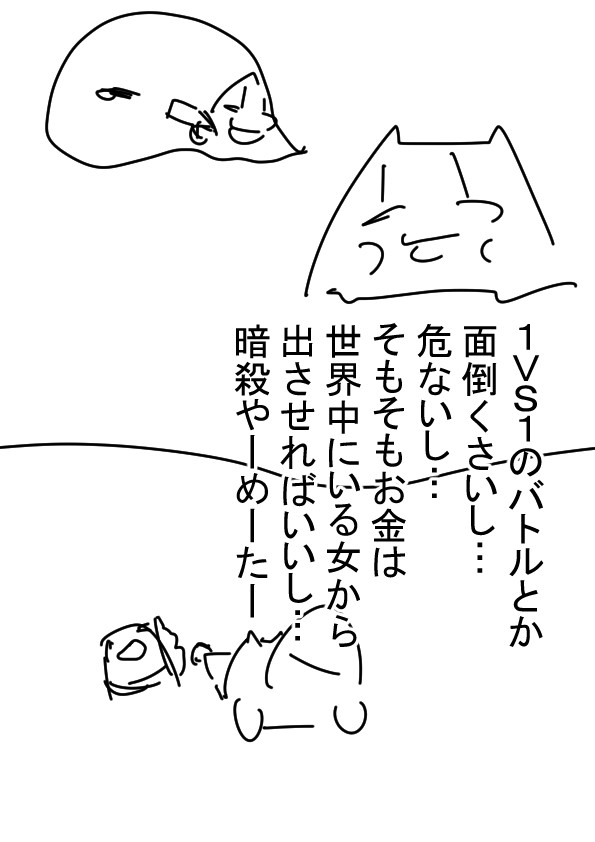 １ＶＳ１のバトルとか
面倒くさいし…
危ないし…
そもそもお金は
世界中にいる女から
出させればいいし…
暗殺やーめーたー